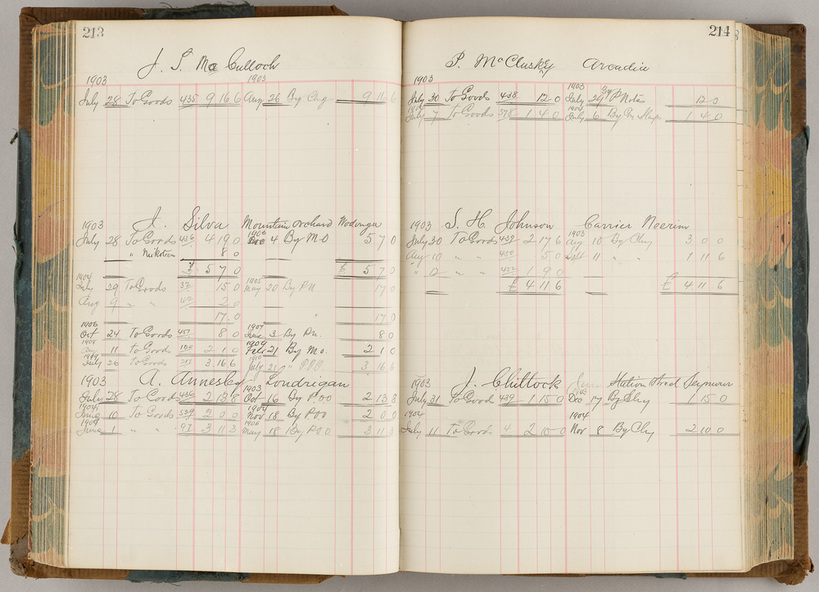 213
J. S. McCulloch
1903 1903
July 28 To Goods 435 9 16 6 Aug 26 By Chq 9 16 6
1903 J. Silva Mountain Orchard Wodonga
July 28 To Goods 436 4 19 0 Dec 4 By M.O 5 7 0
" 8 0
£ 5 7 0 £ 5 7 0
1904 1905
29 To Goods 15 0 May 20 By P.N 17 0
Aug 9 " " 2 0
17 0 17 0
1906 1907
Oct 24 To Goods 457 8 0 June 3 By P.N. 8 0
1908 1909
11 To Goods 180 2 1 0 Feb 21 By M.O. 2 1 0
1914
July 20 To Goods 3 16 6 July 31 " P.O.O 3 16 6
1903 A. Annesby Londrigan
July 28 To Goods 436 2 13 8 Oct 16 By P.O.O 2 13 8
1904 1904
June 10 To Goods 539 2 0 0 Nov 18 By P.O.O 2 0 0
June 1 " " 97 3 11 3 May 18 By P.O.O 3 11 3
214
P. McCluskey Arcadia
1903 1903
July 30 To Goods 438 12 0 July 29 By P Notes 12 0
July 7 To Goods 578 1 4 0 July 6 By 1 4 0
1903 S. H. Johnson Carrier Neerim
July 30 To Goods 439 2 17 6 Aug 10 By Chq 3 0 0
Aug 10 " " 450 5 0 Sept 11 " " 1 11 6
" " " 452 1 9 0
£ 4 11 6 £ 4 11 6
1903 J. Chittock Station Street Seymour
July 31 To Goods 439 1 15 0 Dec 17 By Chq 1 15 0
1904 1904
July 11 To Goods 2 10 0 Nov 8 By Chq 2 10 0